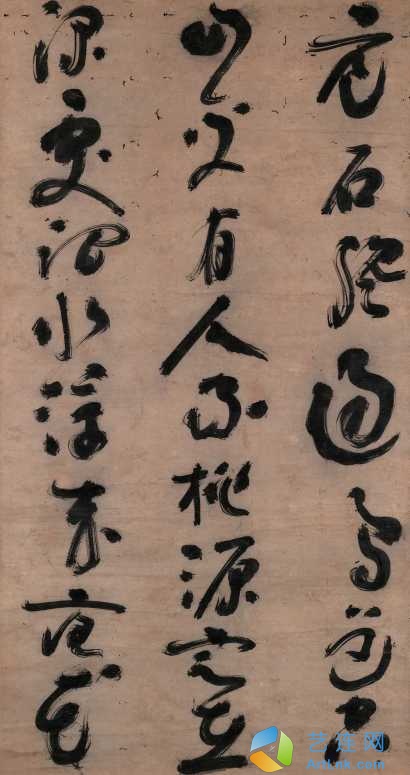 危石纔通鳥道空
山更有人家桃源定在
深處澗水浮來落花